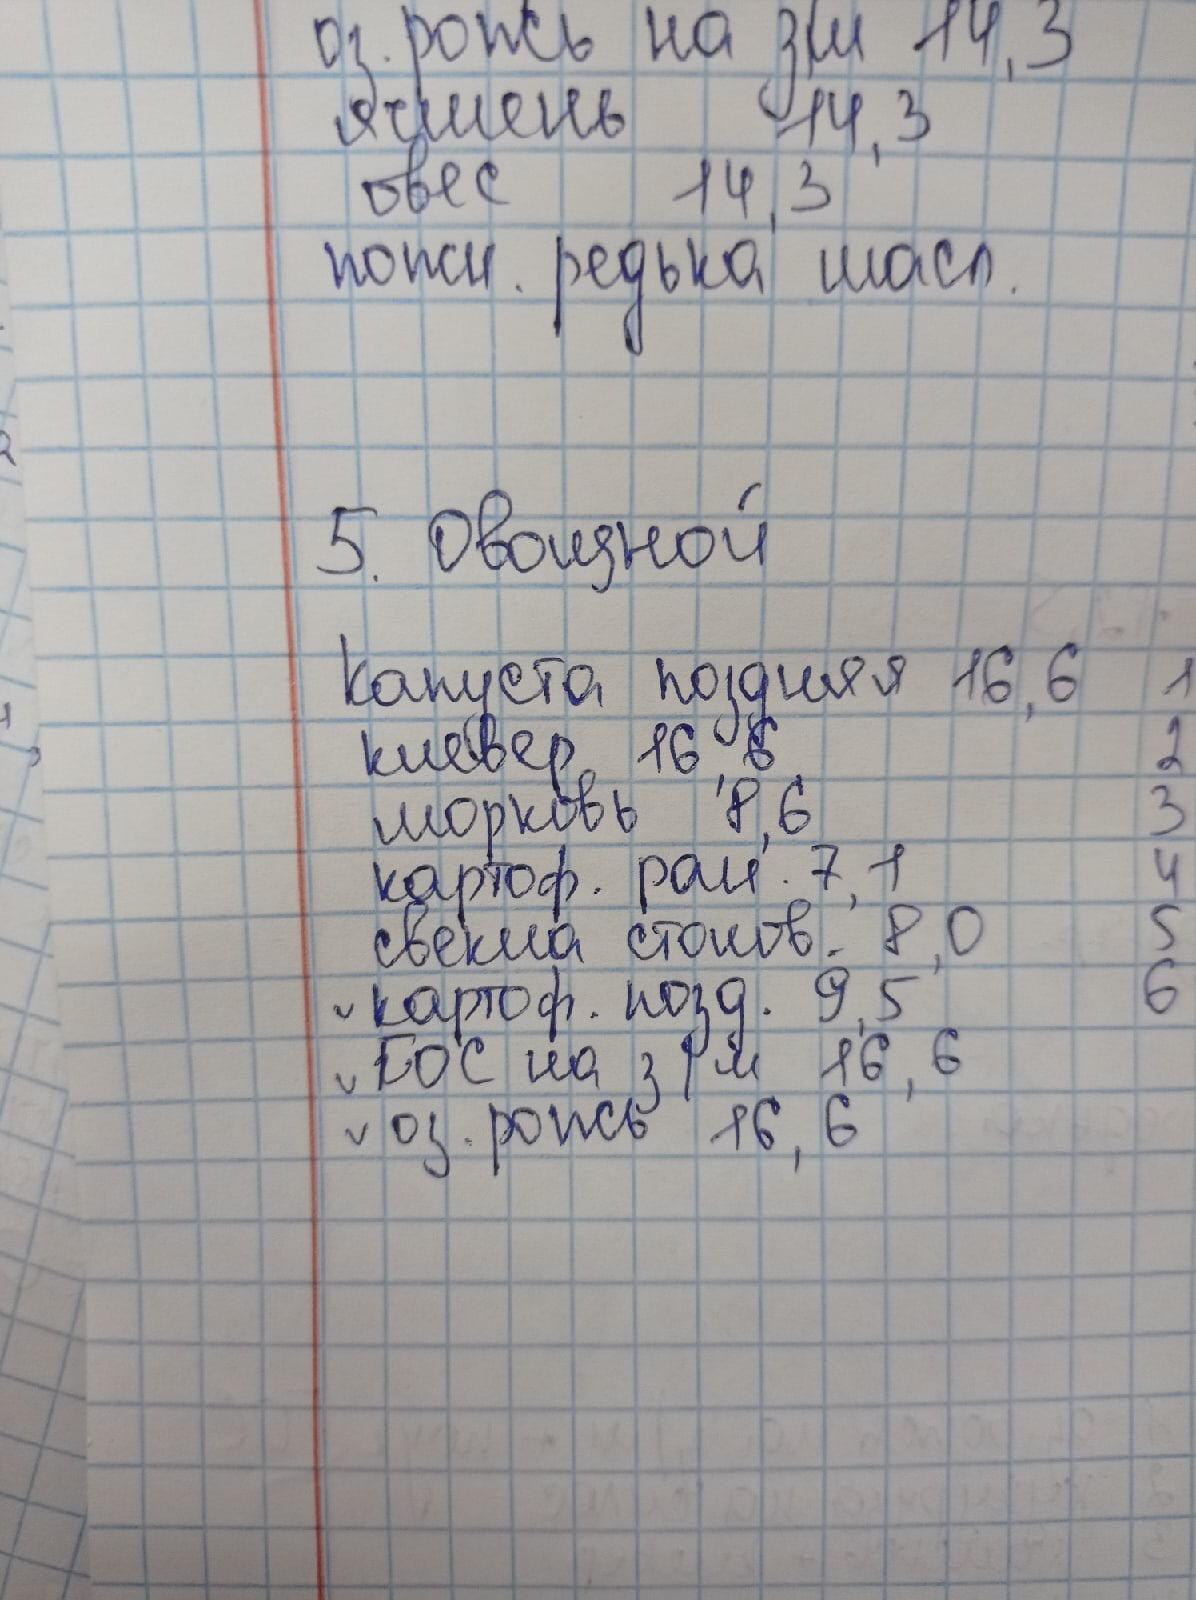 оз. рожь на з/м 14,3
ячмень 14,3
овес 14,3
пожн. редька масл.
5. Овощной
Капуста поздняя 16,6 1
клевер 16,6 2
морковь 8,6 3
картоф. ран. 7,1 4
свекла столов. 8,0 5
картоф. позд. 9,5 6
БОС на з/м 16,6
оз. рожь 16,6